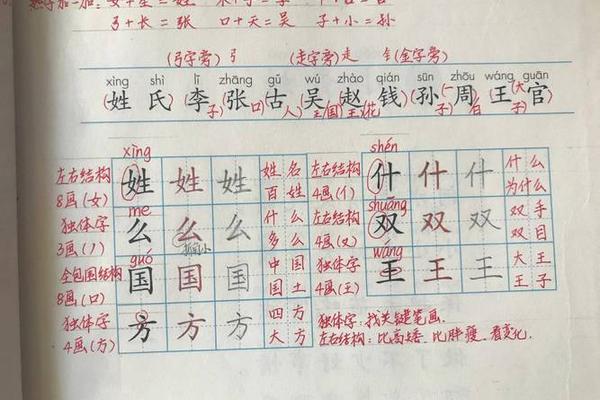 弓+长=张 口+天=吴 子+小=孙
(弓字旁) (走字旁) 走 钅(金字旁)
xìng shì lǐ zhāng gǔ wú zhào qián sūn zhōu wáng guān
姓 氏 李 张 古 吴 赵 钱 孙 周 王 官
xìng shén
左右结构 姓 姓 姓 姓名 左右结构 什 什 什 什么
8画(女) 百姓 4画(亻) 为什么
me shuāng
独体字 么 么 么 什么 左右结构 双 双 双 双手
3画(丿) 多么 4画(又) 双目
guó wáng
全包围结构 国 国 国 中国 独体字 王 王 王 大王
8画(口) 国土 4画(王) 王子
独体字 方 方 方 四方 独体字:找关键笔画.
4画(方) 大方 左右结构:比高矮、比胖瘦、看变化.